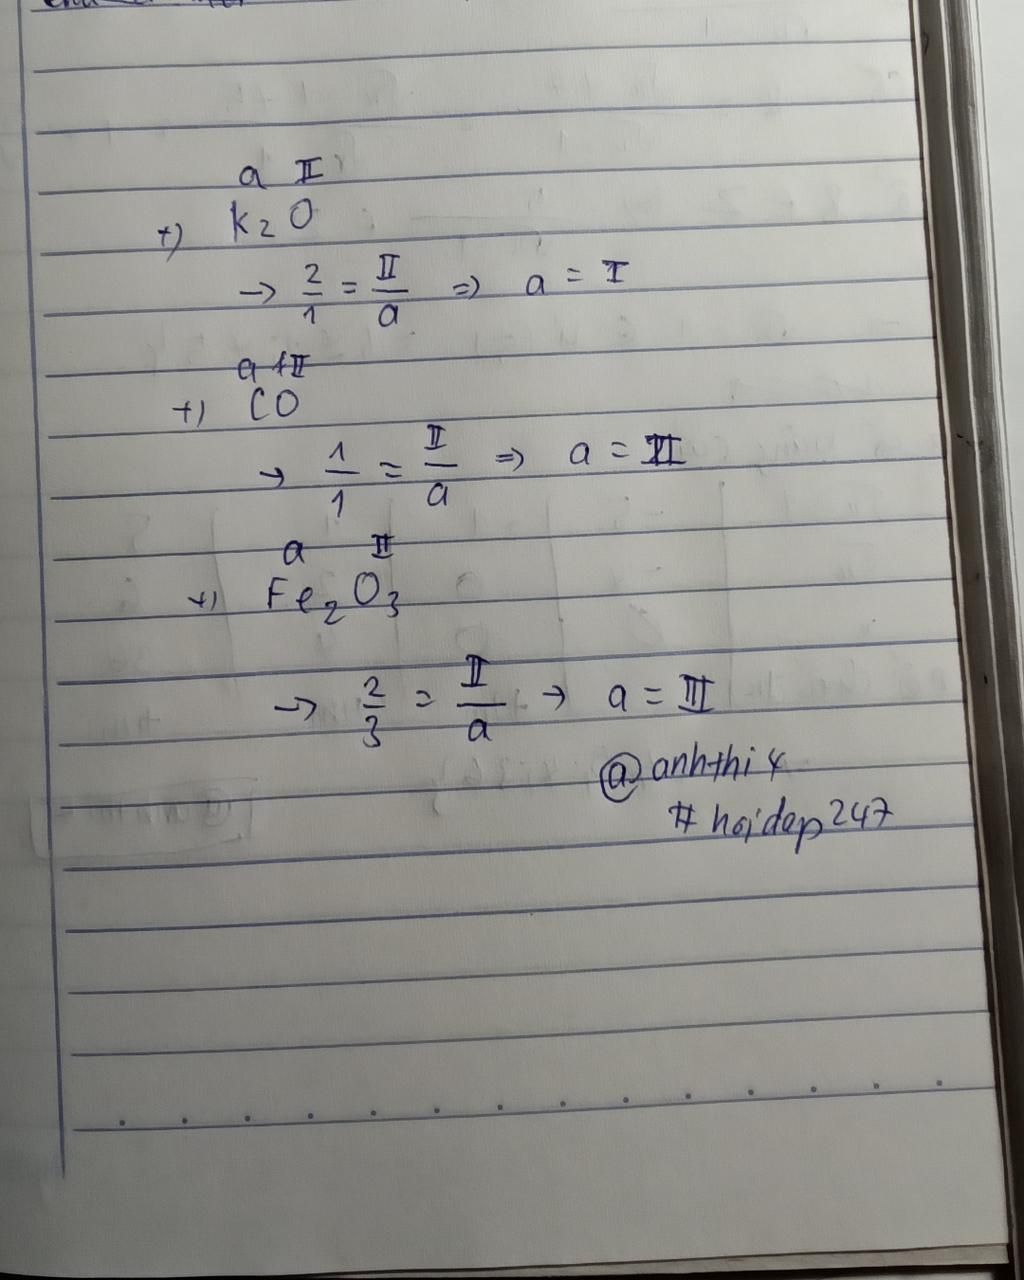 a II
+) K2O
→ 2/1 = II/a => a = I
a II
+) CO
→ 1/1 = II/a => a = II
a II
+) Fe2O3
→ 2/3 = II/a → a = III
@anhthi4
# hoidap247